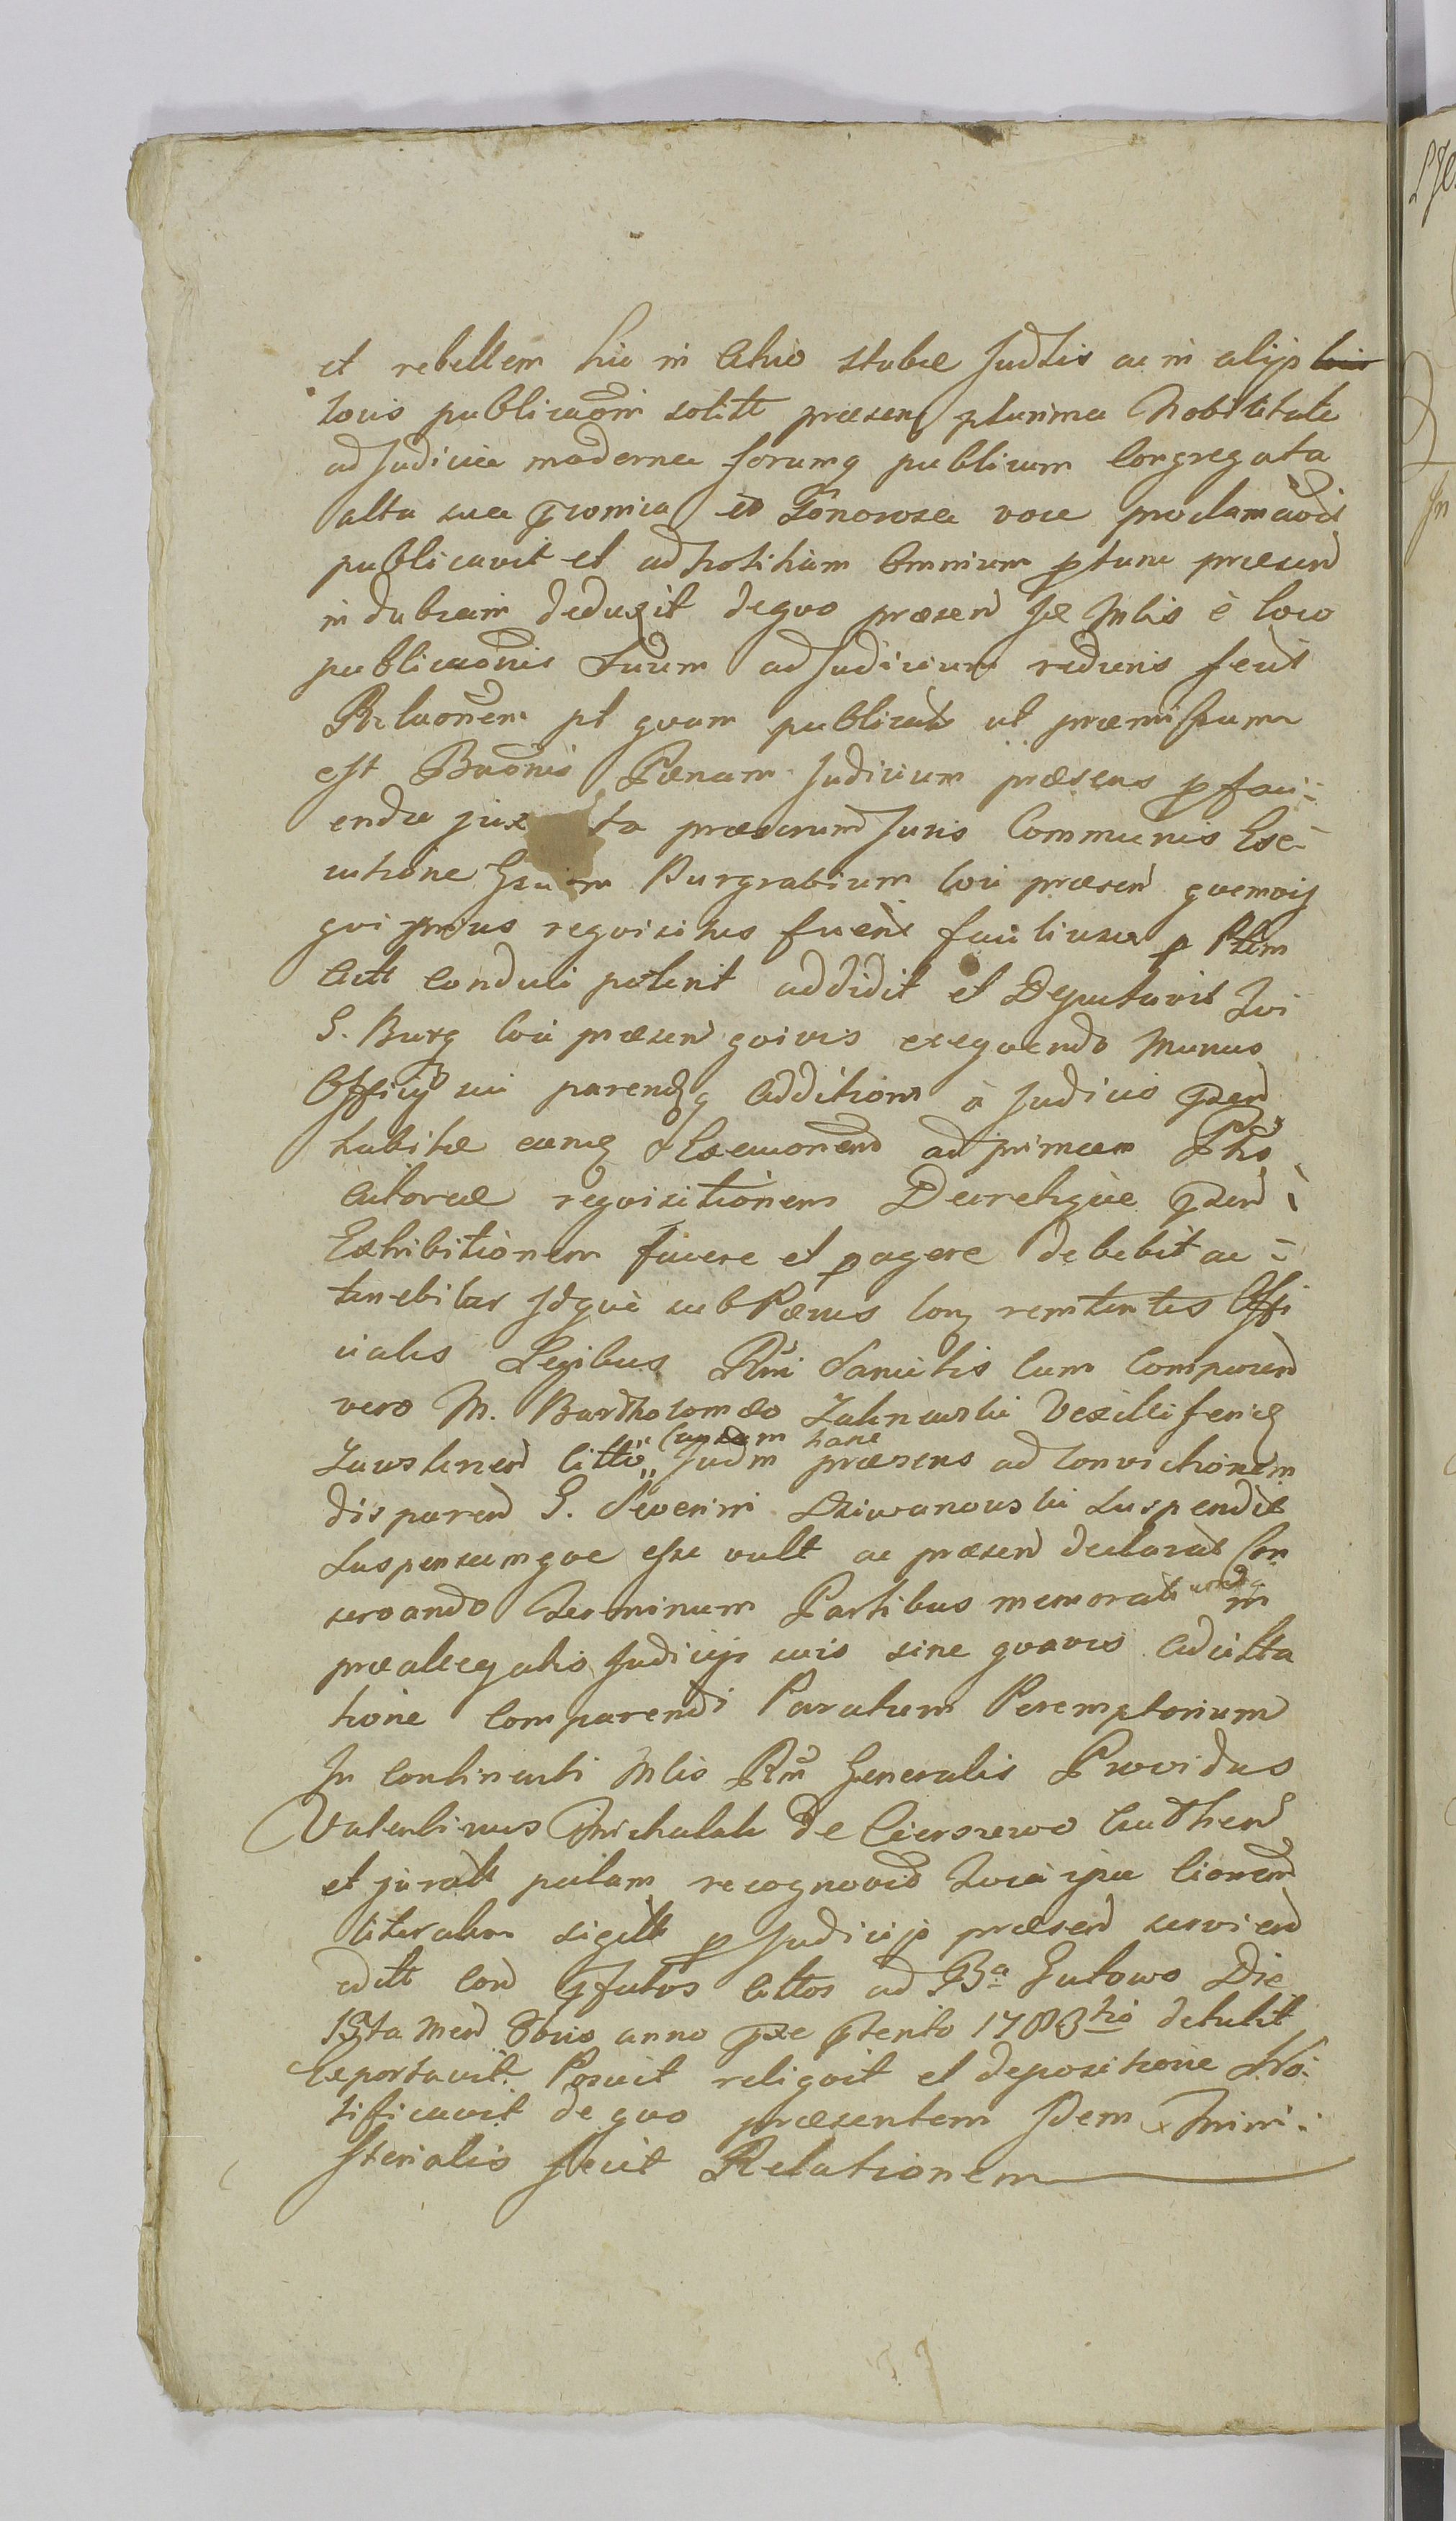 et rebellem hic in Atrio stubæ Judlis ac in alijs
locis publicaõni solitt præsenq plurima Nobilitate
ad Judicia moderna forumq publicum Congregata
alta sua et Sonorosa voce proclamavit
publicavit et ad notitiam Omnium ptunc præsen
indubiam deduxit de quo præsen se Mlis è loco
publicaõnis Suum ad Judicium rediens fecit
Relaõnem pt quam publicat ut præmissum
est Bnaõnis Pænam Judicium præsens p faci-
enda jux ta præscrum Juris Communis Exe-
cutione Burgrabium loci præsen quemvis
qui prius requisitus fuerit facilius p Ptem
Act conduci poterit addidit et Deputavit Qui
G. Burg loci præsen quivis exequendo Munus
Officij sui parendq Additioni à Judicio præn
habitæ eamq Execuõnem ad primam Ptis
Actoreæ requisitionem Decretique præn
Exhibitionem facere et pagere debebit ac
tenebitur Idquè sub Pænis con remtentes Offi
ciales Legibus Rni Sancitis Cum Comparen
vero M. Bartholomæo Zakrzewski Vexilliferiq
Judm præsens ad Convictionem
disparen G. Severini Dziwanowski Suspendit
Suspensamque esse vult ac præsen declarat Con
servando Terminum Partibus memorat in
præallegatis Judicijs suis sine quavis Adcita
tione Comparendi Paratum Peremptorium
In Continenti Mlis Rni Generalis Providus
Valentinus Michalak de Cierszewo Authen
et juratt palam recognovit Quia ipse
literatem sigillt p Judicijs præsen servien
editt con Actos ad Ba Gutowo Die
13ta Men 8bris anno 1783tio detulit
Ceportavit Posuit reliquit et depositione No-
tificavit de quo præsentem Idem Mini-
sterialis fecit Relationem